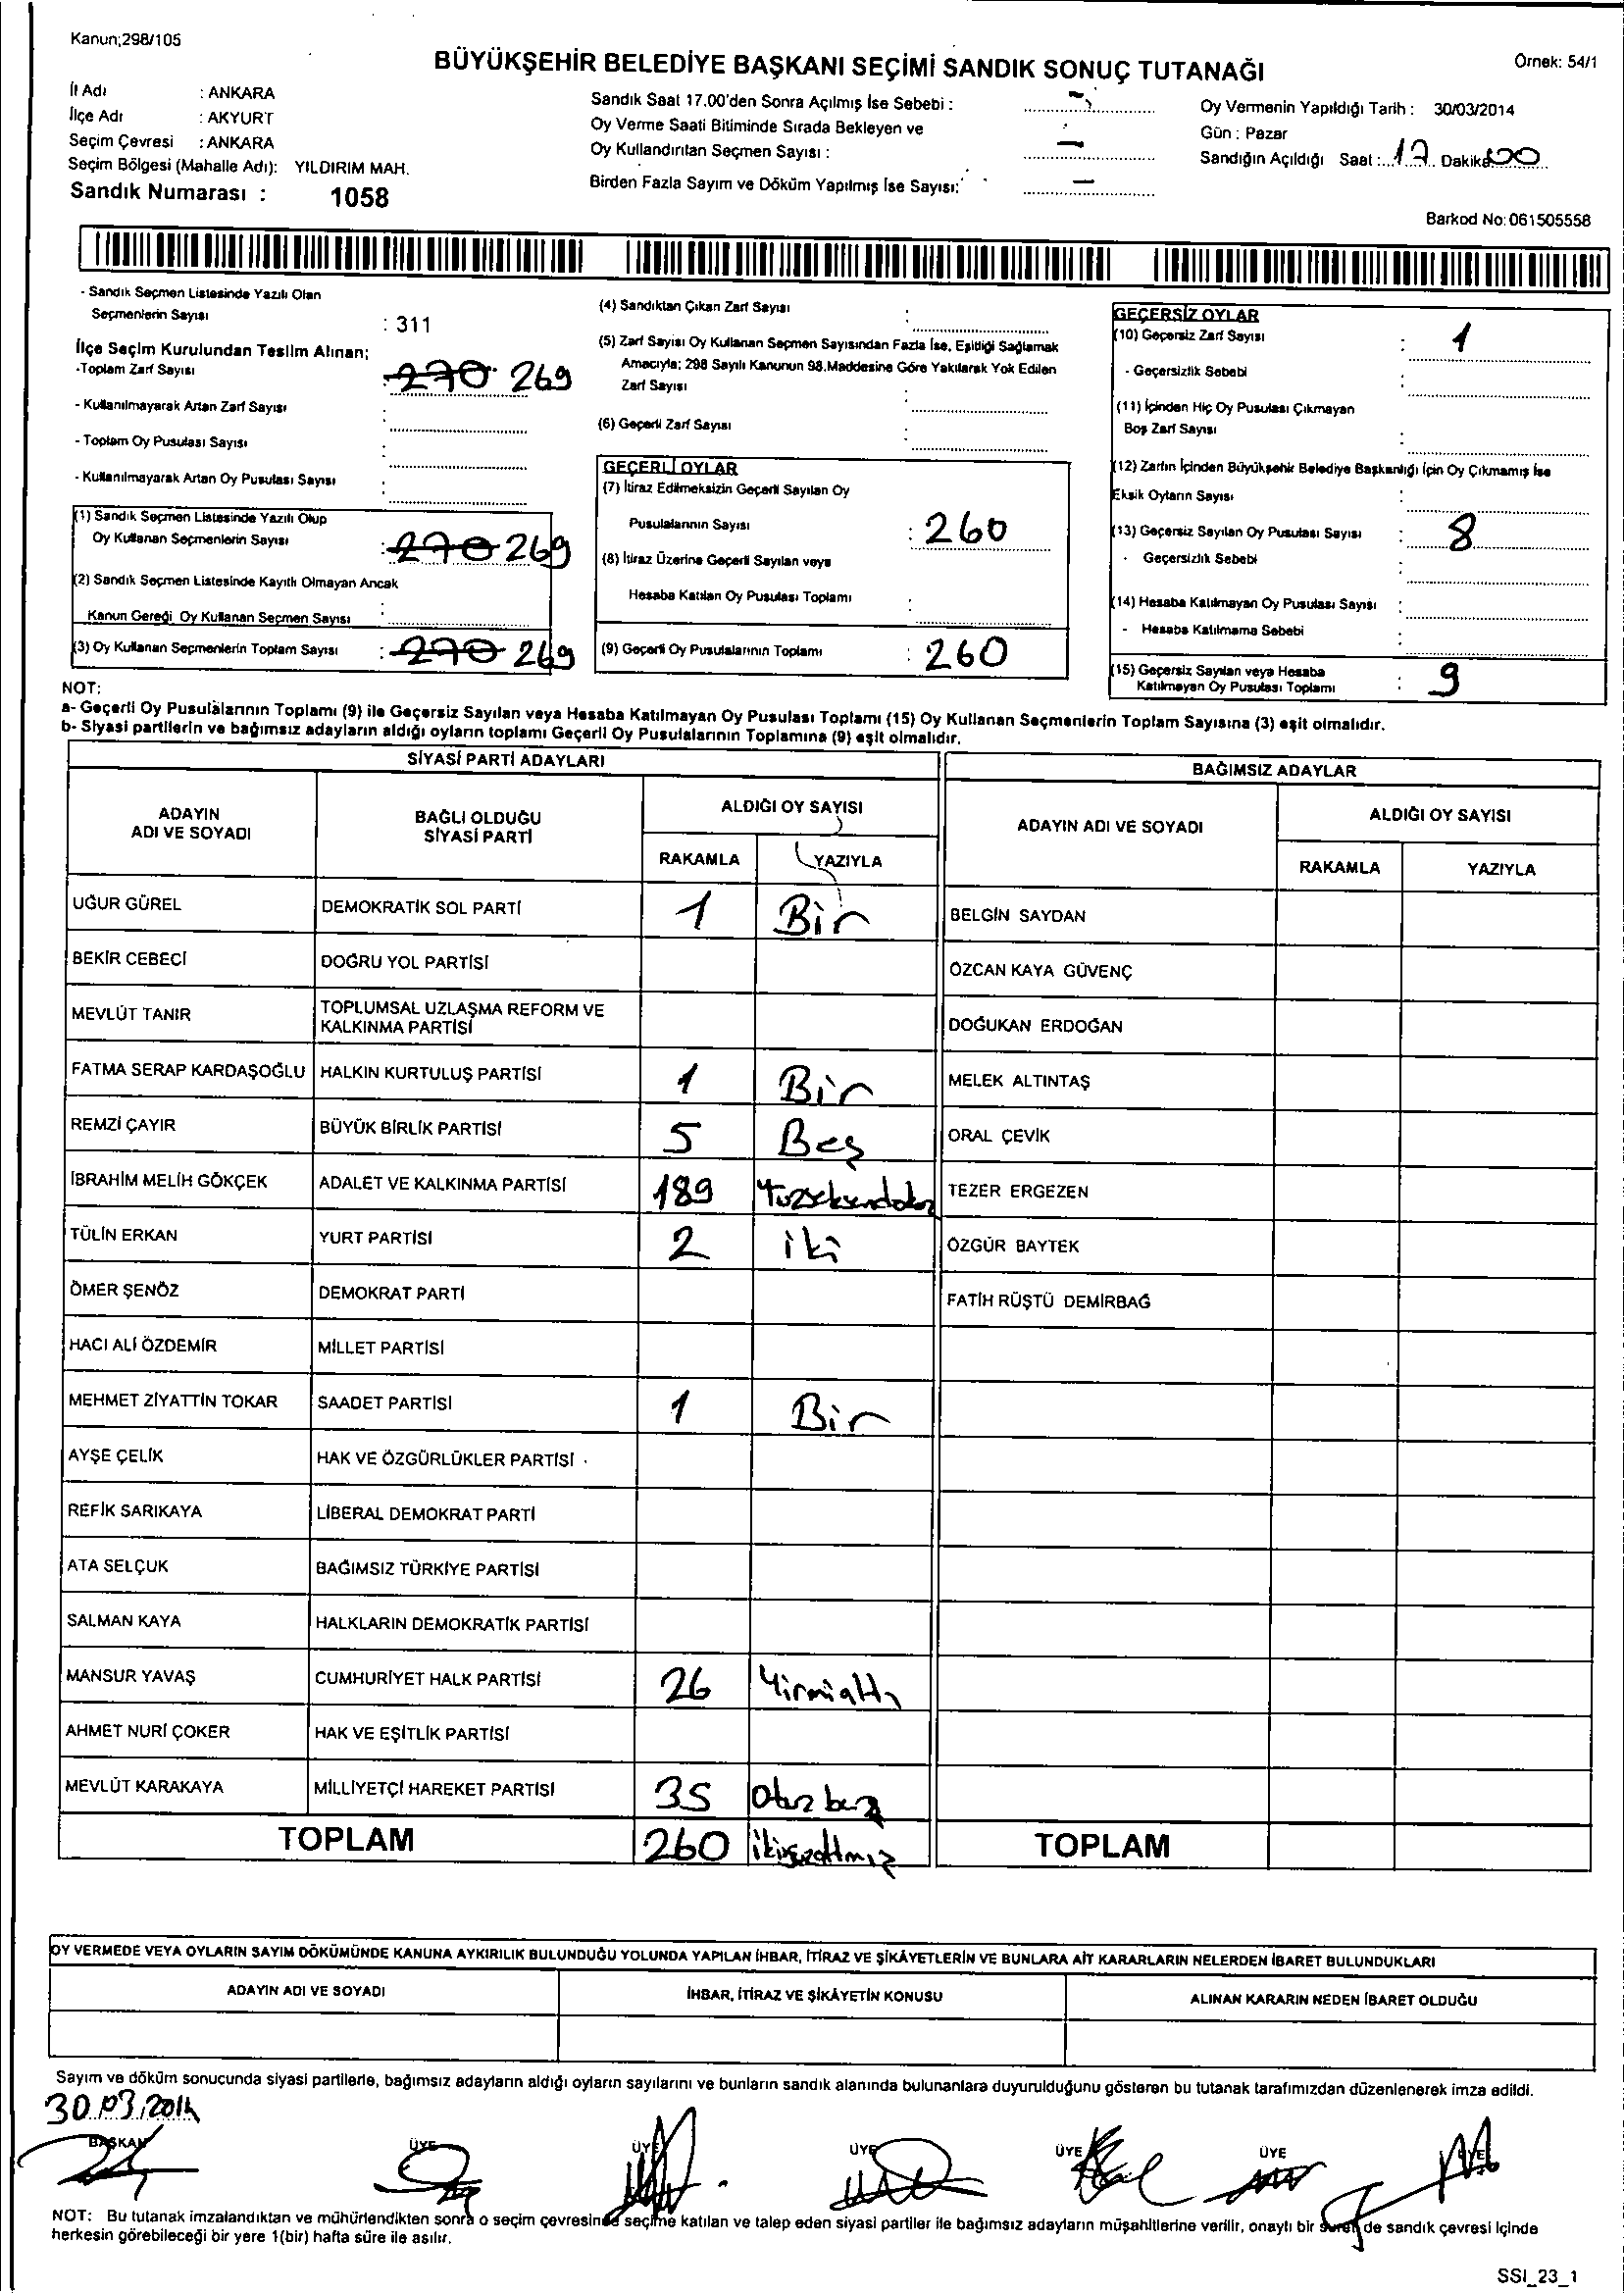 Kanun;298/105
BÜYÜKŞEHİR BELEDİYE BAŞKANI SEÇİMİ SANDIK SONUÇ TUTANAĞI
Örnek: 54/1
İl Adı : ANKARA
İlçe Adı : AKYURT
Seçim Çevresi : ANKARA
Seçim Bölgesi (Mahalle Adı): YILDIRIM MAH.
Sandık Numarası : 1058
Sandık Saat 17.00'den Sonra Açılmış İse Sebebi : -
Oy Verme Saati Bitiminde Sırada Bekleyen ve
Oy Kullandırılan Seçmen Sayısı : -
Birden Fazla Sayım ve Döküm Yapılmış İse Sayısı: -
Oy Vermenin Yapıldığı Tarih : 30/03/2014
Gün : Pazar
Sandığın Açıldığı Saat :...17.. Dakika 00
Barkod No: 061505558
- Sandık Seçmen Listesinde Yazılı Olan
Seçmenlerin Sayısı : 311
İlçe Seçim Kurulundan Teslim Alınan;
-Toplam Zarf Sayısı : 270 269
- Kullanılmayarak Artan Zarf Sayısı :
- Toplam Oy Pusulası Sayısı :
- Kullanılmayarak Artan Oy Pusulası Sayısı :
(1) Sandık Seçmen Listesinde Yazılı Olup
Oy Kullanan Seçmenlerin Sayısı : 270 269
(2) Sandık Seçmen Listesinde Kayıtlı Olmayan Ancak
Kanun Gereği Oy Kullanan Seçmen Sayısı :
(3) Oy Kullanan Seçmenlerin Toplam Sayısı : 270 269
(4) Sandıktan Çıkan Zarf Sayısı :
(5) Zarf Sayısı Oy Kullanan Seçmen Sayısından Fazla İse, Eşitliği Sağlamak
Amacıyla; 298 Sayılı Kanunun 98.Maddesine Göre Yakılarak Yok Edilen
Zarf Sayısı :
(6) Geçerli Zarf Sayısı :
GEÇERLİ OYLAR
(7) İtiraz Edilmeksizin Geçerli Sayılan Oy
Pusulalarının Sayısı : 260
(8) İtiraz Üzerine Geçerli Sayılan veya
Hesaba Katılan Oy Pusulası Toplamı :
(9) Geçerli Oy Pusulalarının Toplamı : 260
GEÇERSİZ OYLAR
(10) Geçersiz Zarf Sayısı : 1
- Geçersizlik Sebebi :
(11) İçinden Hiç Oy Pusulası Çıkmayan
Boş Zarf Sayısı :
(12) Zarfın İçinden Büyükşehir Belediye Başkanlığı İçin Oy Çıkmamış İse
Eksik Oyların Sayısı :
(13) Geçersiz Sayılan Oy Pusulası Sayısı : 8
- Geçersizlik Sebebi :
(14) Hesaba Katılmayan Oy Pusulası Sayısı :
- Hesaba Katılmama Sebebi :
(15) Geçersiz Sayılan veya Hesaba
Katılmayan Oy Pusulası Toplamı : 9
NOT:
a- Geçerli Oy Pusulalarının Toplamı (9) ile Geçersiz Sayılan veya Hesaba Katılmayan Oy Pusulası Toplamı (15) Oy Kullanan Seçmenlerin Toplam Sayısına (3) eşit olmalıdır.
b- Siyasi partilerin ve bağımsız adayların aldığı oyların toplamı Geçerli Oy Pusulalarının Toplamına (9) eşit olmalıdır.
SİYASİ PARTİ ADAYLARI
ADAYIN ADI VE SOYADI
BAĞLI OLDUĞU SİYASİ PARTİ
ALDIĞI OY SAYISI
RAKAMLA YAZIYLA
UĞUR GÜREL DEMOKRATİK SOL PARTİ 1 Bir
BEKİR CEBECİ DOĞRU YOL PARTİSİ
MEVLÜT TANIR TOPLUMSAL UZLAŞMA REFORM VE KALKINMA PARTİSİ
FATMA SERAP KARDAŞOĞLU HALKIN KURTULUŞ PARTİSİ 1 Bir
REMZİ ÇAYIR BÜYÜK BİRLİK PARTİSİ 5 Beş
İBRAHİM MELİH GÖKÇEK ADALET VE KALKINMA PARTİSİ 189 Yüzseksendokuz
TÜLİN ERKAN YURT PARTİSİ 2 iki
ÖMER ŞENÖZ DEMOKRAT PARTİ
HACI ALİ ÖZDEMİR MİLLET PARTİSİ
MEHMET ZİYATTİN TOKAR SAADET PARTİSİ 1 Bir
AYŞE ÇELİK HAK VE ÖZGÜRLÜKLER PARTİSİ
REFİK SARIKAYA LİBERAL DEMOKRAT PARTİ
ATA SELÇUK BAĞIMSIZ TÜRKİYE PARTİSİ
SALMAN KAYA HALKLARIN DEMOKRATİK PARTİSİ
MANSUR YAVAŞ CUMHURİYET HALK PARTİSİ 26 Yirmialtı
AHMET NURİ ÇOKER HAK VE EŞİTLİK PARTİSİ
MEVLÜT KARAKAYA MİLLİYETÇİ HAREKET PARTİSİ 35 Otuz beş
TOPLAM 260 ikiyüzaltmış
BAĞIMSIZ ADAYLAR
ADAYIN ADI VE SOYADI
ALDIĞI OY SAYISI
RAKAMLA YAZIYLA
BELGİN SAYDAN
ÖZCAN KAYA GÜVENÇ
DOĞUKAN ERDOĞAN
MELEK ALTINTAŞ
ORAL ÇEVİK
TEZER ERGEZEN
ÖZGÜR BAYTEK
FATİH RÜŞTÜ DEMİRBAĞ
TOPLAM
OY VERMEDE VEYA OYLARIN SAYIM DÖKÜMÜNDE KANUNA AYKIRILIK BULUNDUĞU YOLUNDA YAPILAN İHBAR, İTİRAZ VE ŞİKÂYETLERİN VE BUNLARA AİT KARARLARIN NELERDEN İBARET BULUNDUKLARI
ADAYIN ADI VE SOYADI İHBAR, İTİRAZ VE ŞİKÂYETİN KONUSU ALINAN KARARIN NEDEN İBARET OLDUĞU
Sayım ve döküm sonucunda siyasi partilerle, bağımsız adayların aldığı oyların sayılarını ve bunların sandık alanında bulunanlara duyurulduğunu gösteren bu tutanak tarafımızdan düzenlenerek imza edildi.
30.03.2014
BAŞKAN ÜYE ÜYE ÜYE ÜYE ÜYE ÜYE
NOT: Bu tutanak imzalandıktan ve mühürlendikten sonra o seçim çevresinde seçime katılan ve talep eden siyasi partiler ile bağımsız adayların müşahitlerine verilir, onaylı bir sureti de sandık çevresi içinde
herkesin görebileceği bir yere 1(bir) hafta süre ile asılır.
SSI_23_1